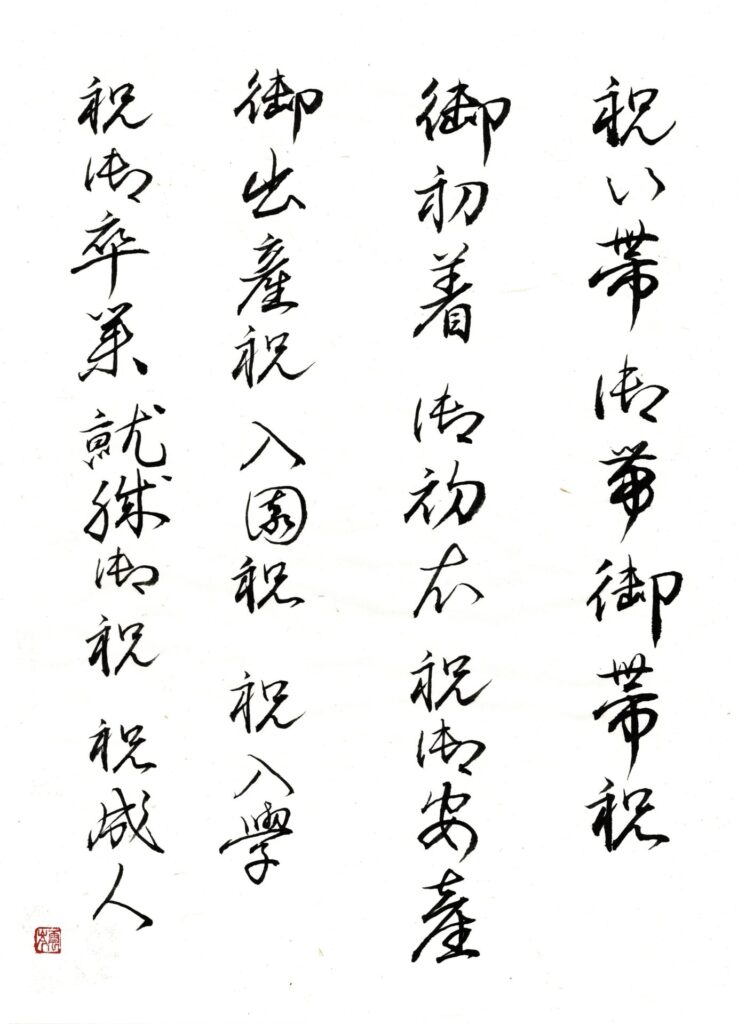 祝い帯 御帯 御帯祝
御初着 御初衣 祝御安産
御出産祝 入園祝 祝入學
祝御卒業 就職御祝 祝成人